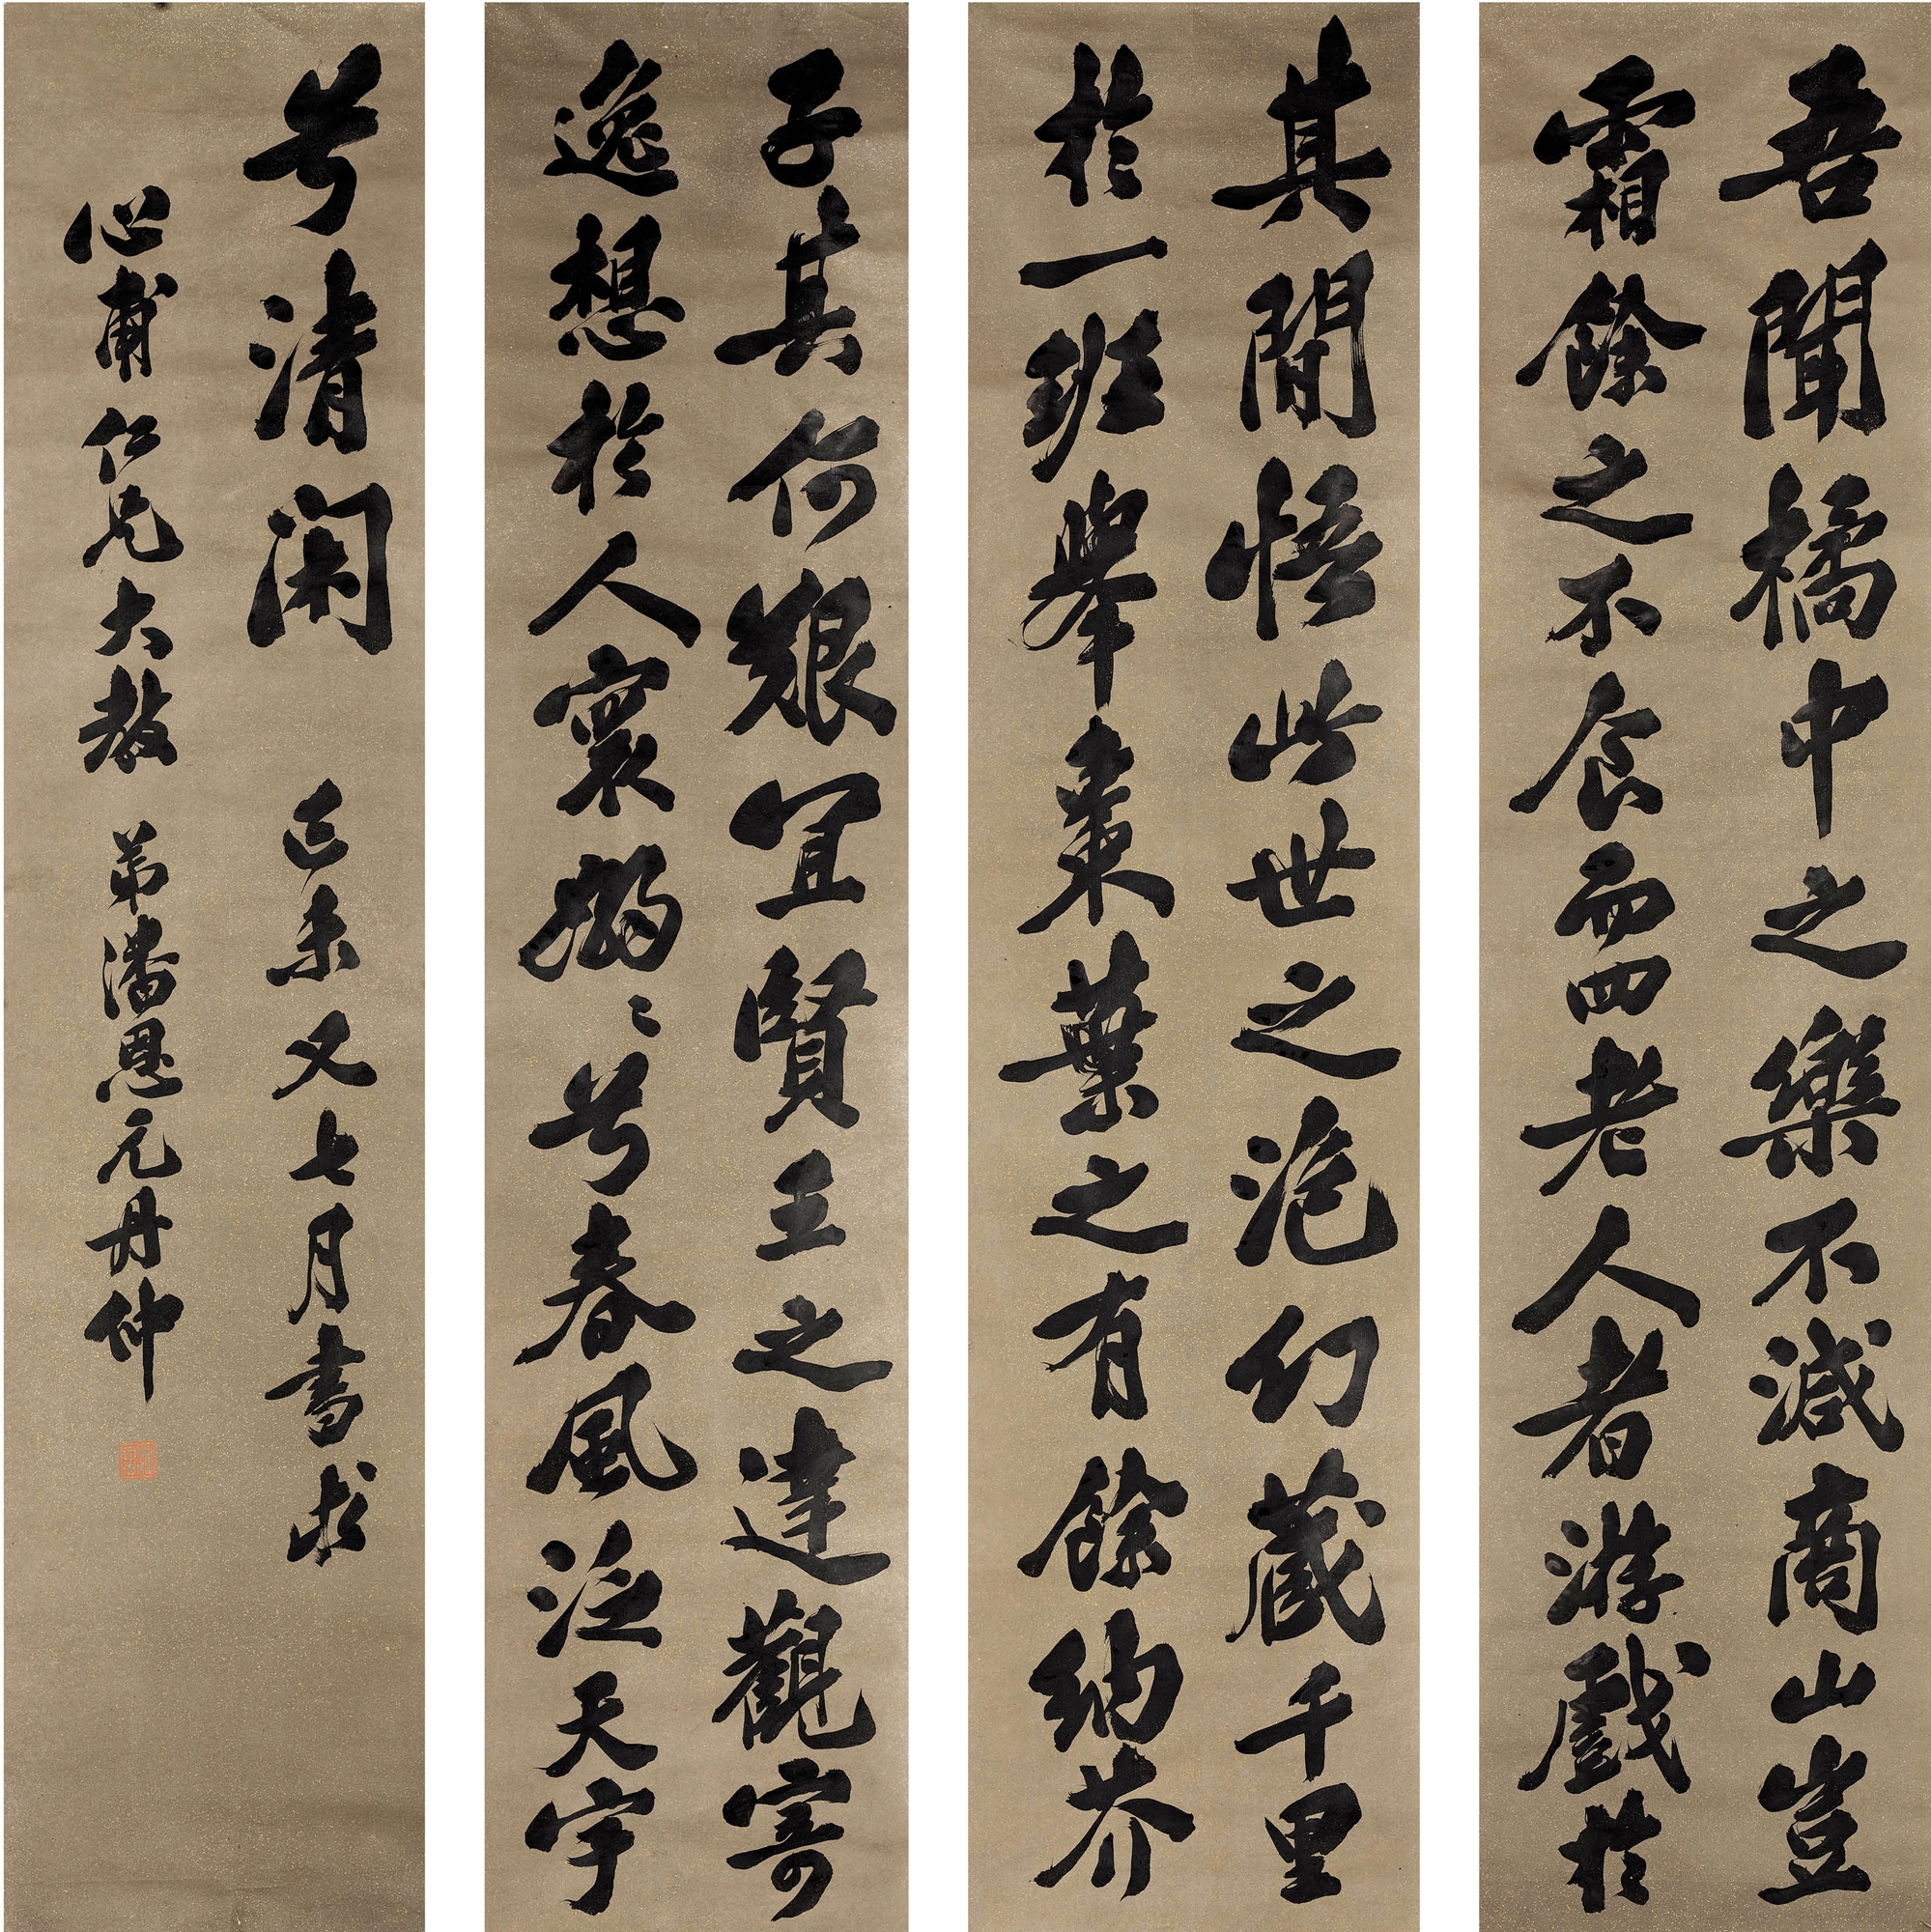 吾聞橘中之樂不減商山豈
霜餘之不食而四老人者游戲於
其間悟此世之泡幻藏千里
於一班舉棗葉之有餘納芥
子其何艱宜賢王之達觀寄
逸想於人寰嫋〻兮春風泛天宇
兮清閑 己未又七月書於
心甫仁兄大教 弟潘恩元丹仲